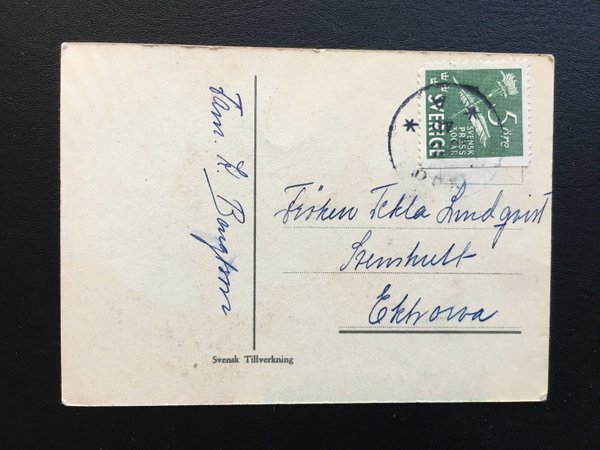 Fam. K. Bengtsson
5 öre
SVENSK
PRESS
300 ÅR
SVERIGE
Fröken Tekla Lindqvist
Stenshult
Ektorva
Svensk Tillverkning